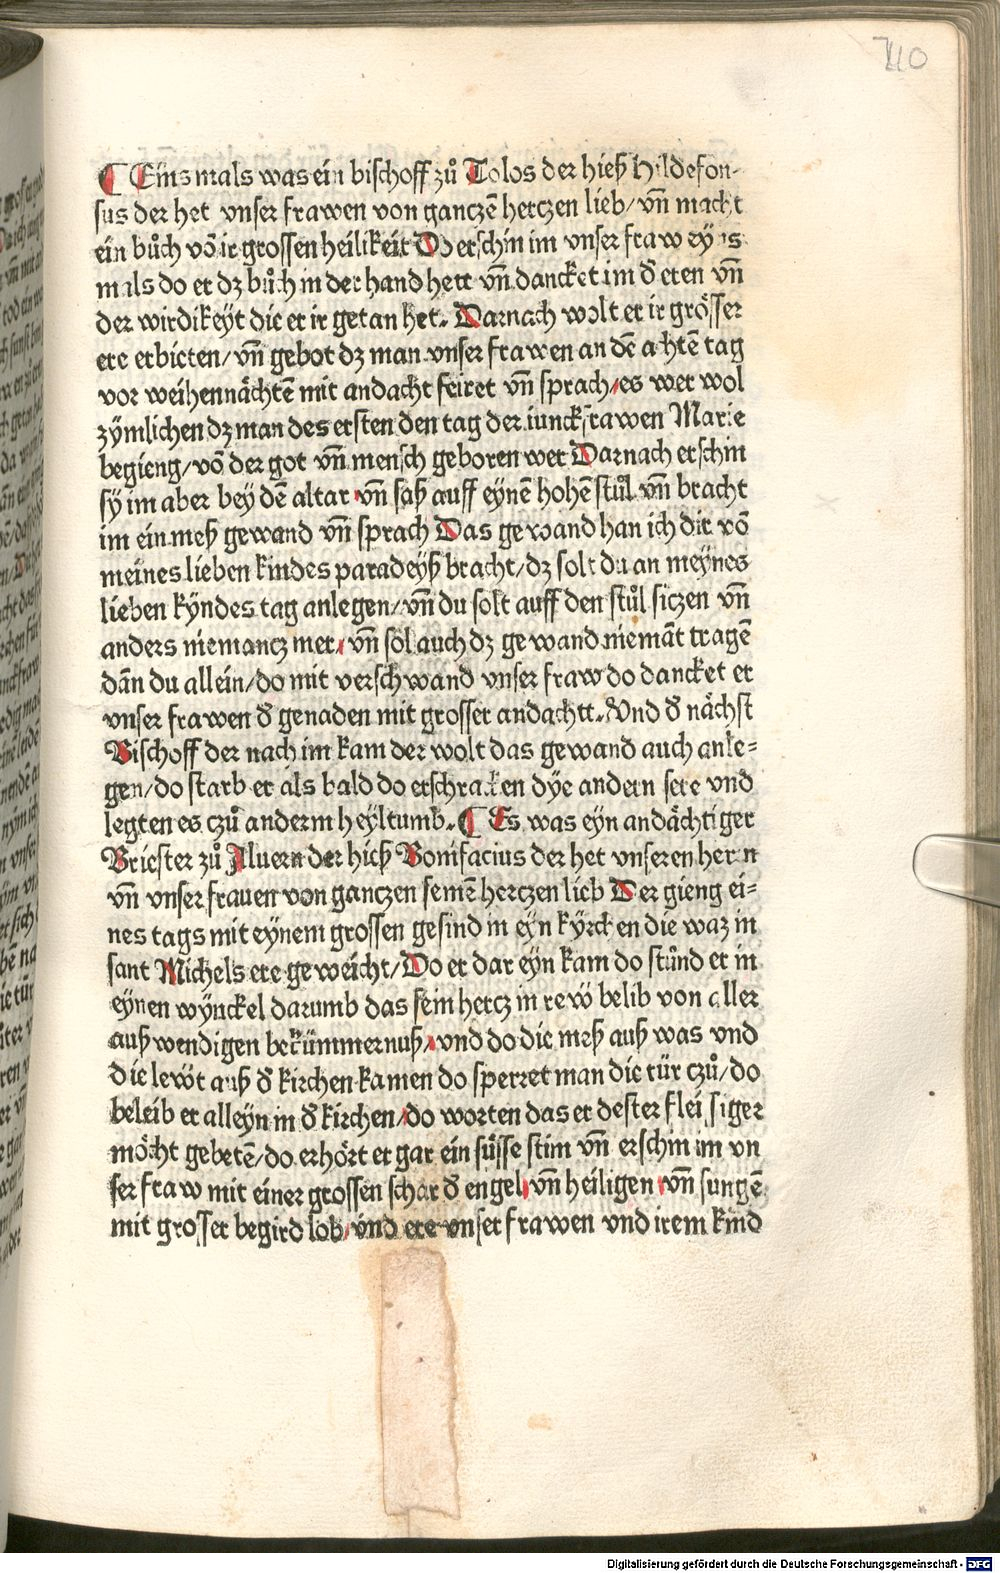 710
¶ Eins mals was ein bischoff zů Tolos der hieß Hildefon-
sus der het vnser frawen von ganczē herczen lieb/ vñ macht
ein bůch vō ir grossen heilikeit Do erschin im vnser fraw eyns
mals do er dz bůch in der hand hett vñ dancket im d̄ eren vñ
der wirdikeyt die er ir getan het. Darnach wolt er ir grösser
ere erbieten/ vñ gebot dz man vnser frawen an dē achtē tag
vor weihennächtē mit andacht feiret vñ sprach/ es wer wol
zymlichen dz man des ersten den tag der iunckfrawen Marie
begieng/ vō der got vñ mensch geboren wer Darnach erschin
sy im aber bey dē altar vñ saß auff eynē hohē stůl vñ bracht
im ein meß gewand vñ sprach Das gewand han ich dir vō
meines lieben kindes paradeyß bracht/ dz solt du an meynes
lieben kyndes tag anlegen/ vñ du solt auff den stůl siczen vñ
anders niemancz mer/ vñ sol auch dz gewand niemāt tragē
dān du allein/ do mit verschwand vnser fraw do dancket er
vnser frawen d̄ genaden mit grosser andachtt. Vnd d̄ nächst
Bischoff der nach im kam der wolt das gewand auch anle=
gen/ do starb er als bald do erschraken dye andern sere vnd
legten es czů anderm heyltumb. ¶ Es was eyn andächtiger
Briester zů Aluern der hieß Bonifacius der het vnseren hern
vñ vnser frauen von ganczen seinē herczen lieb Der gieng ei=
nes tags mit eynem grossen gesind in eyn kyrchen die waz in
sant Michels ere geweicht/ Do er dar eyn kam do stůnd er in
eynen wynckel darumb das sein hercz in rew̋ belib von aller
außwendigen bekümmernuß/ vnd do die meß auß was vnd
die lew̋t auß d̄ kirchen kamen do sperret man die tür czů/ do
beleib er alleyn in d̄ kirchen/ do worten das er dester fleissiger
möcht gebetē/ do erhört er gar ein süsse stim vñ erschin im vn
ser fraw mit einer grossen schar d̄ engel vñ heiligen vñ sungē
mit grosser begird lob/ vnd ere vnser frawen vnd irem kind
Digitalisierung gefördert durch die Deutsche Forschungsgemeinschaft - DFG